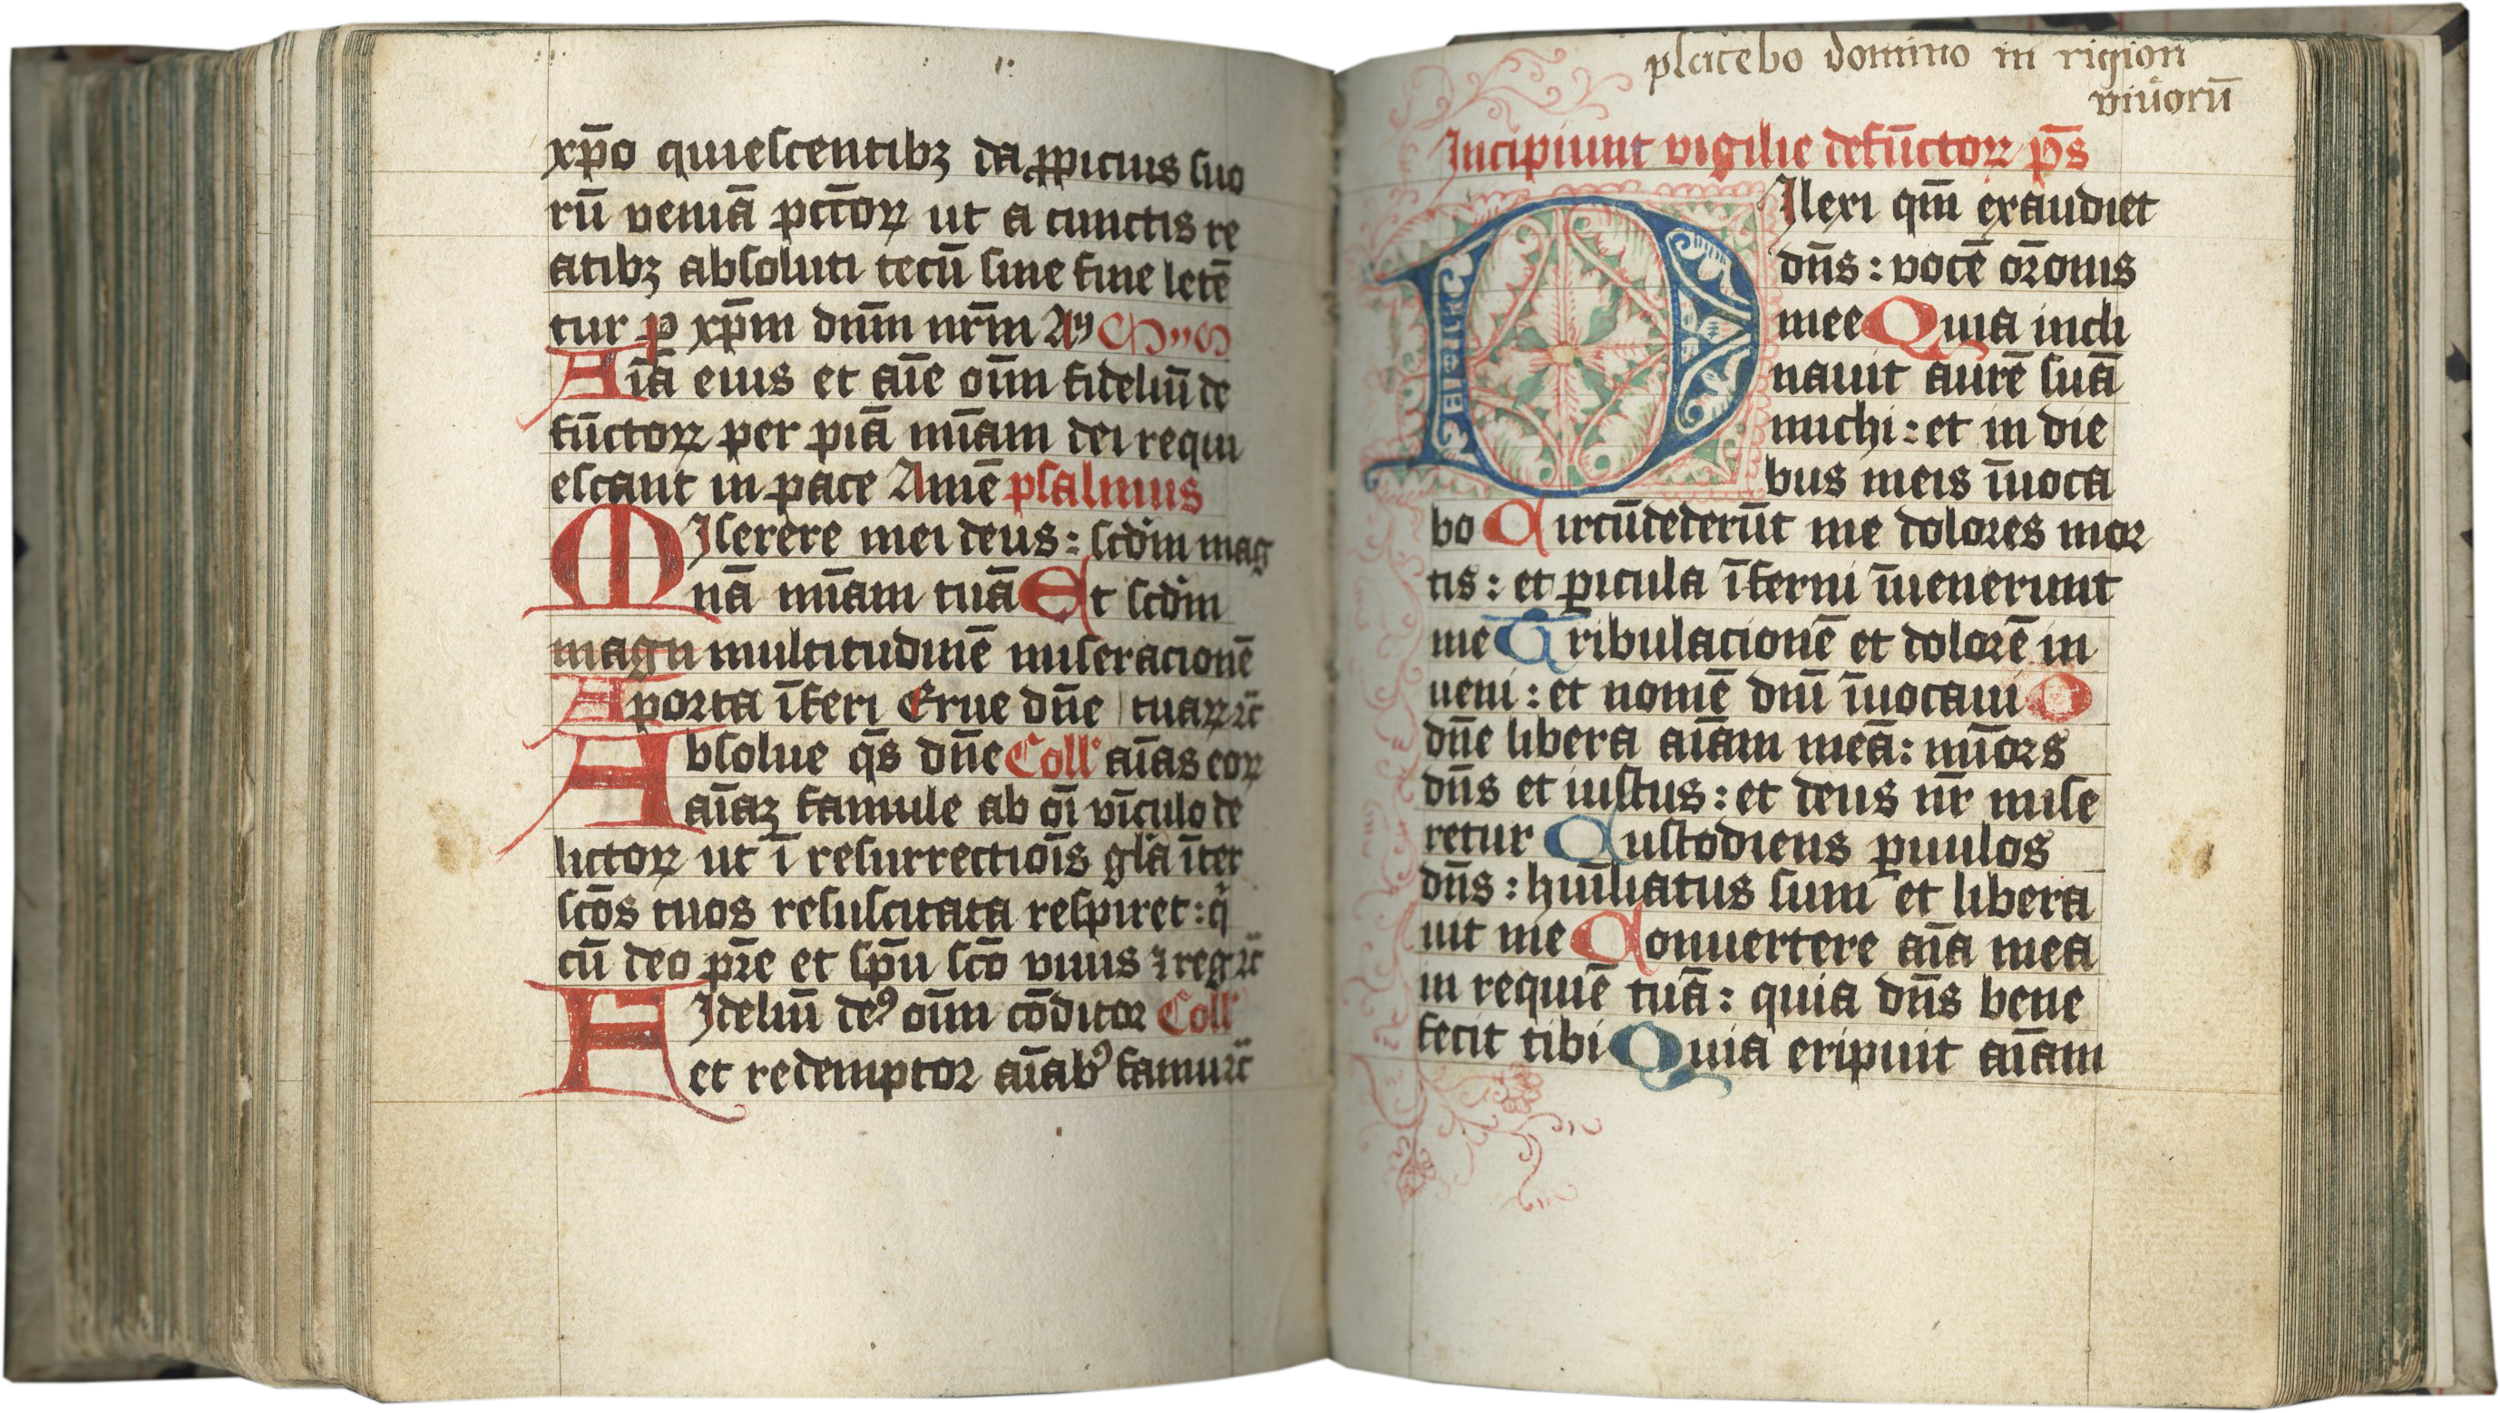 xp̄o quiescentibꝫ da ꝓpicius suo
rū veniā pctōꝝ ut a cunctis re
atibꝫ absoluti tecū sine fine letē
tur ꝑ xp̄m dnm̄ nrm̄ Am̄
Aīa eius et aīe oīm fideliū de
fūctoꝝ per piā mīam dei requi
escant in pace Amē psalmus
MIserere mei deus : scdm̄ mag
nā mīam tuā Et scdm̄
magn multitudinē miseracionē
A porta īferi Erue dn̄e tuaꝝ ꝛc̄
Absolue qs̄ dn̄e Coll' aīas eoꝝ
aīaꝫ famule ab oī vīculo de
lictoꝝ ut ī resurrectiōis glā īter
scōs tuos resuscitata respiret : q̄
cū deo pr̄e et sp̄u scō viuis ⁊ reg ꝛc̄
FIdeliū deꝰ oīm cōditor Coll'
et redemptor aīabꝰ famu ꝛc̄
placebo domino in rigion
viuorū
Incipiunt vigilie defūctoꝝ ps̄
DIlexi qm̄ exaudiet
dn̄s : vocē or̄onis
mee Quia incli
nauit aurē suā
michi : et in die
bus meis īuoca
bo Circūdederūt me dolores mor
tis : et ꝑicula īferni īuenerunt
me Tribulacionē et dolorē in
ueni : et nomē dnī īuocaui O
dn̄e libera aīam meā : mīcors
dn̄s et iustus : et deus nr̄ mise
retur Custodiens ꝑuulos
dn̄s : humīliatus sum et libera
uit me Conuertere aīa mea
in requiē tuā : quia dn̄s bene
fecit tibi Quia eripuit aīam